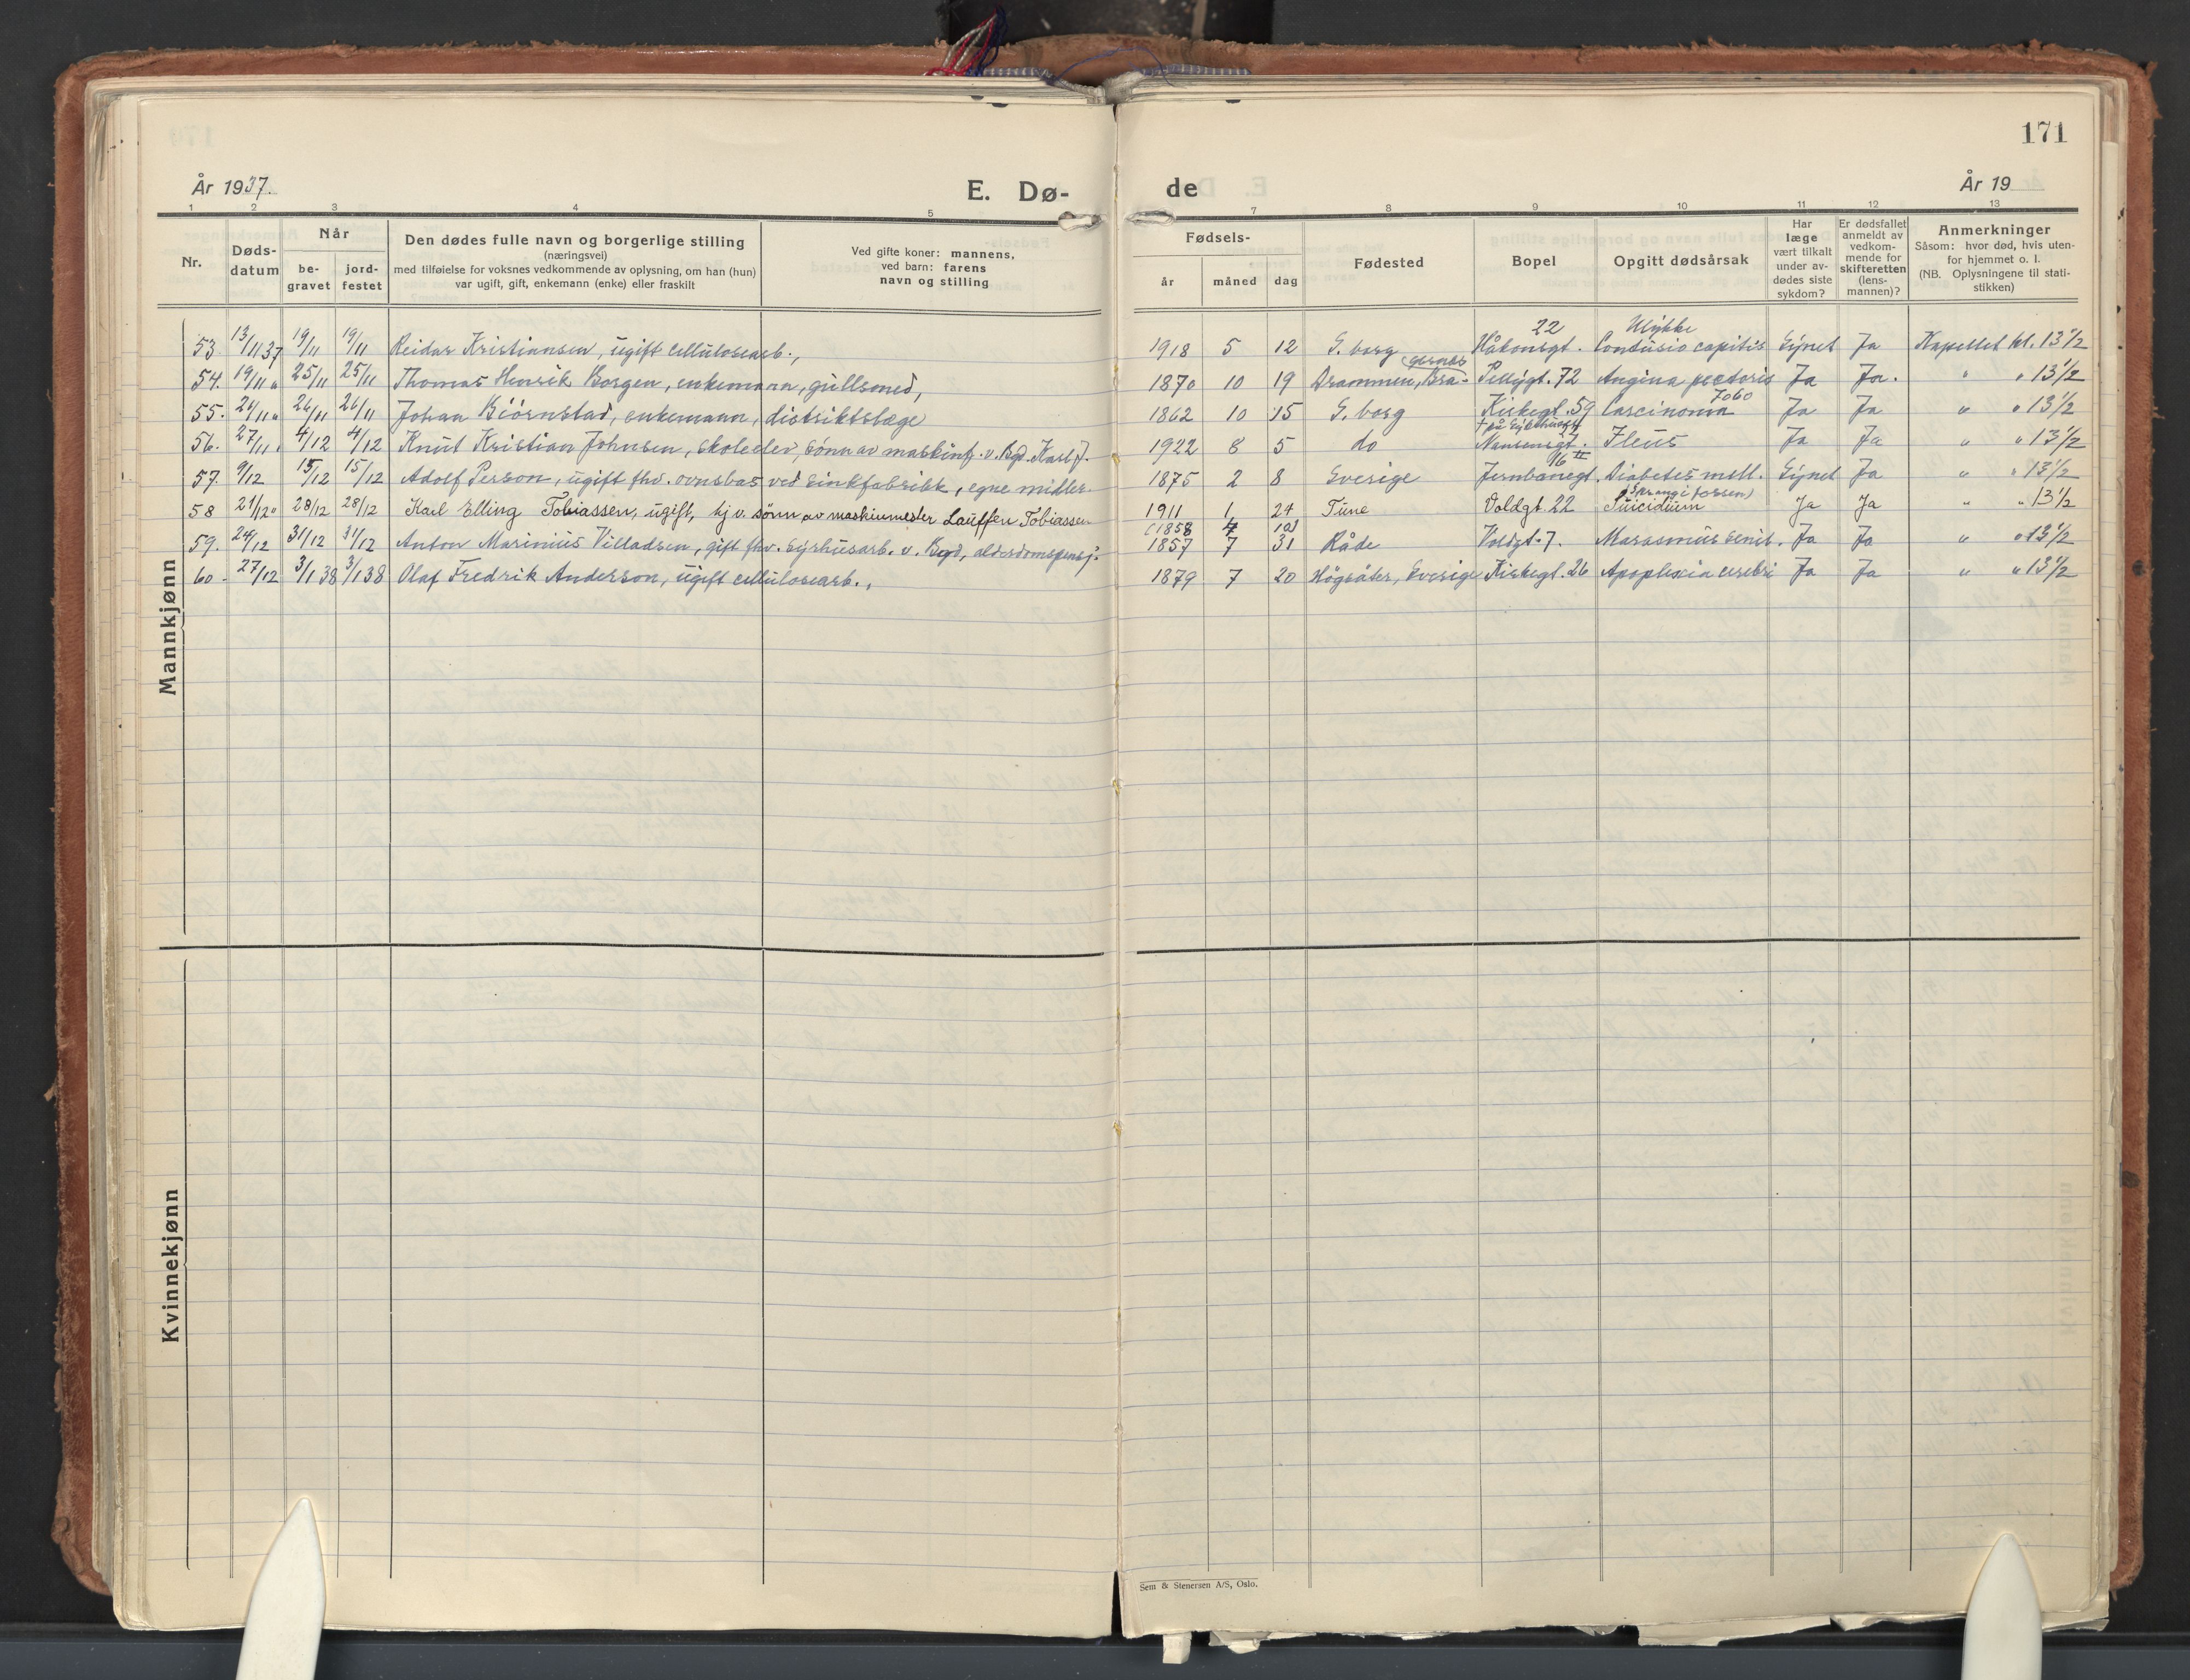 171
År 1937.
E. Dø-
de
År 19
1 2 3 4 5 7 8 9 10 11 12 13
Nr.
Døds-
datum
Når
be-
gravet
jord-
festet
Den dødes fulle navn og borgerlige stilling
(næringsvei)
med tilføielse for voksnes vedkommende av oplysning, om han (hun)
var ugift, gift, enkemann (enke) eller fraskilt
Ved gifte koner: mannens,
ved barn: farens
navn og stilling
Fødsels-
år måned dag
Fødested
Bopel
Opgitt dødsårsak
Har
læge
vært tilkalt
under av-
dødes siste
sykdom?
Er dødsfallet
anmeldt av
vedkom-
mende for
skifteretten
(lens-
mannen)?
Anmerkninger
Såsom: hvor død, hvis uten-
for hjemmet o. l.
(NB. Oplysningene til stati-
stikken)
Mannkjønn
53. 13/11 37 19/11 19/11 Reidar Kristiansen, ugift cellulosearb., 1918 5 12 S. borg Håkonsgt. 22 Ulykke Contusio capitis Synet Ja Kapellet kl. 13 1/2
54. 19/11 " 25/11 25/11 Thomas Henrik Borgen, enkemann, gullsmed, 1870 10 19 Drammen, Bragernes Pellygt. 72 Angina pectoris Ja Ja. " " 13 1/2
55. 26/11 26/11 Johan Biörnstad, enkemann, distriktslæge 1862 10 15 S. borg Kirkegt. 59 Carcinoma Ja Ja " " 13 1/2
56. 27/11 " 4/12 4/12 Knut Kristian Johnsen, skoleelev, sönn av maskinf. v. Bgd. Karl J. 1922 8 5 do Nansensgt. Ileus Ja Ja " " 13 1/2
57. 9/12 15/12 15/12 Adolf Person, ugift fhv. ovnsbas ved Sinkfabrikk, egne midler. 1875 2 8 Sverige Jernbanegt. 16 II Diabetes mell. Synet Ja " " 13 1/2
58 21/12 " 28/12 28/12 Karl Elling Tobiassen, ugift, hj. v. sönn av maskinmester Lauffen Tobiassen 1911 1 24 Tune Voldgt. 22 Suicidium (Sprang i fossen) Ja Ja " " 13 1/2
59. 24/12 31/12 31/12 Anton Marinius Villadsen, gift fhv. syrhusarb. v. Bgd, alderdomspensj. (1858 4 10) 1857 7 31 Råde Voldgt. 7. Marasmus senil. Ja Ja " " 13 1/2
60. 27/12 3/1 38 3/1 38 Olaf Fredrik Anderson, ugift cellulosearb., 1879 7 20 Högsäter, Sverige Kirkegt. 26 Apoplexia cerebri Ja Ja " " 13 1/2
Kvinnekjønn
Sem & Stenersen A/S, Oslo.